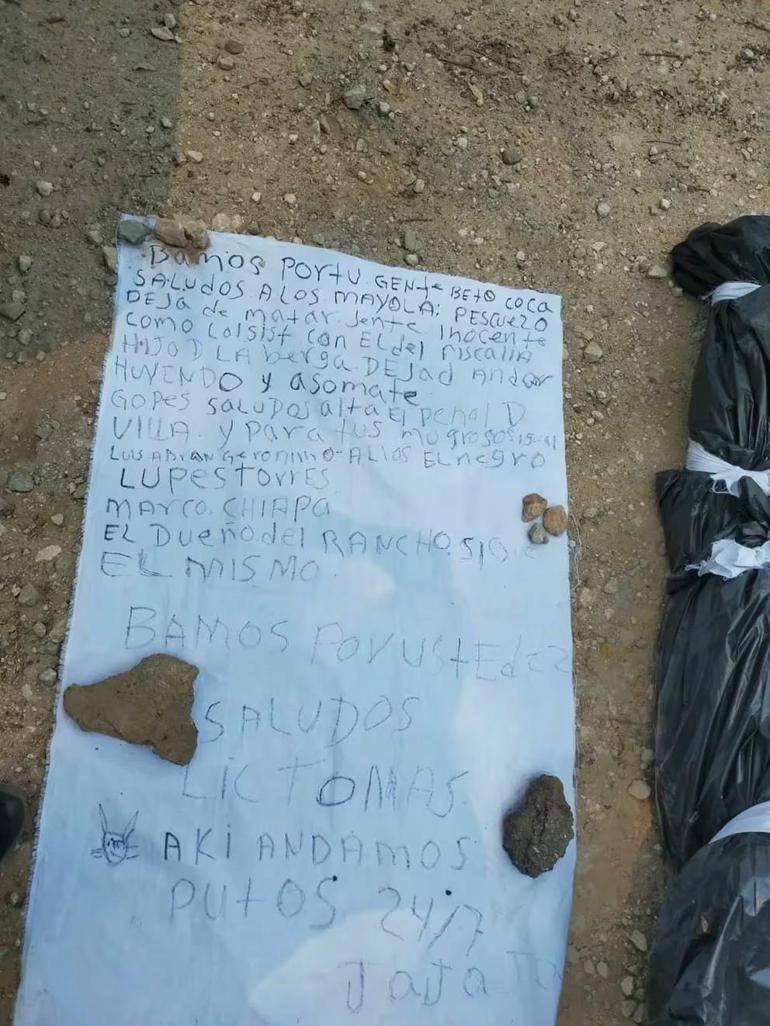 BAMOS PORTU. GENTE BETO COCA
SALUDOS A LOS MAYOLA: PESCUEZO
DEJA de MATAR. JENTE INOCENTE
COMO LOISIST CON EL del FISCALIA
HIJO D LA berga. DEJAD ANDAR
HUYENDO y asomate
GOPES SALUDOS alta El penal D
VILLA. y PARA TUS mugrosos
LUIS ADRIAN GERONIMO "ALIAS EL negro
LUPES TORRES
MARCO. CHIAPA
EL DUEÑO del RANCHO. SIGUE
EL MISMO
BAMOS POR USTEDEZ
SALUDOS
LIC TOMAS.
AKI ANDAMOS
PUTOS 24/7
JAJAJA